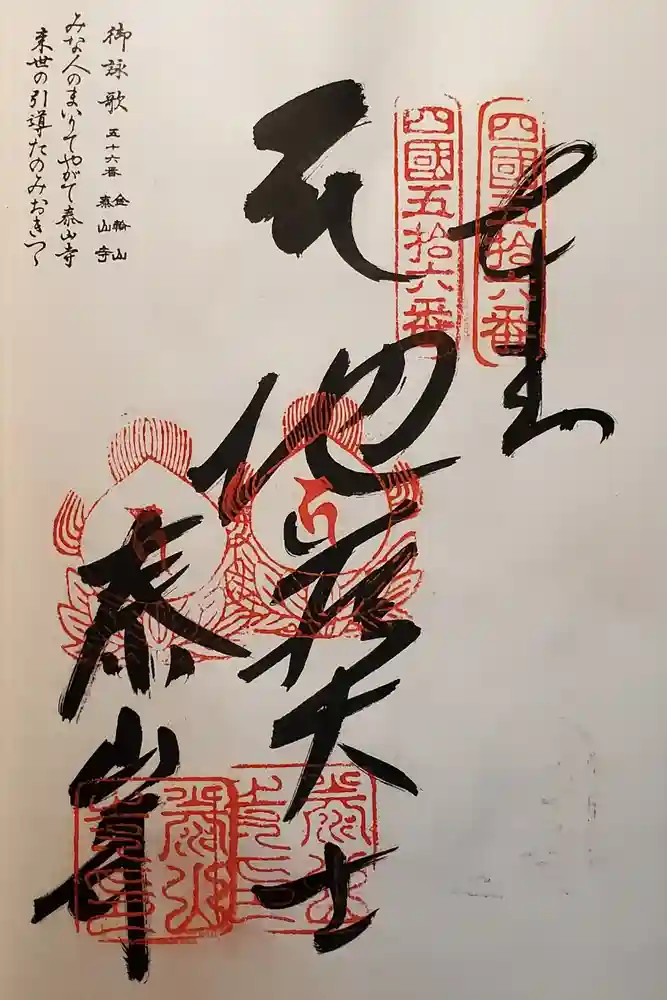 奉
四國五拾六番
四國五拾六番
地蔵大士
泰山寺
御詠歌 五十六番 金輪山
泰山寺
みな人のまいりてやがて泰山寺
来世の引導たのみおきつゝ